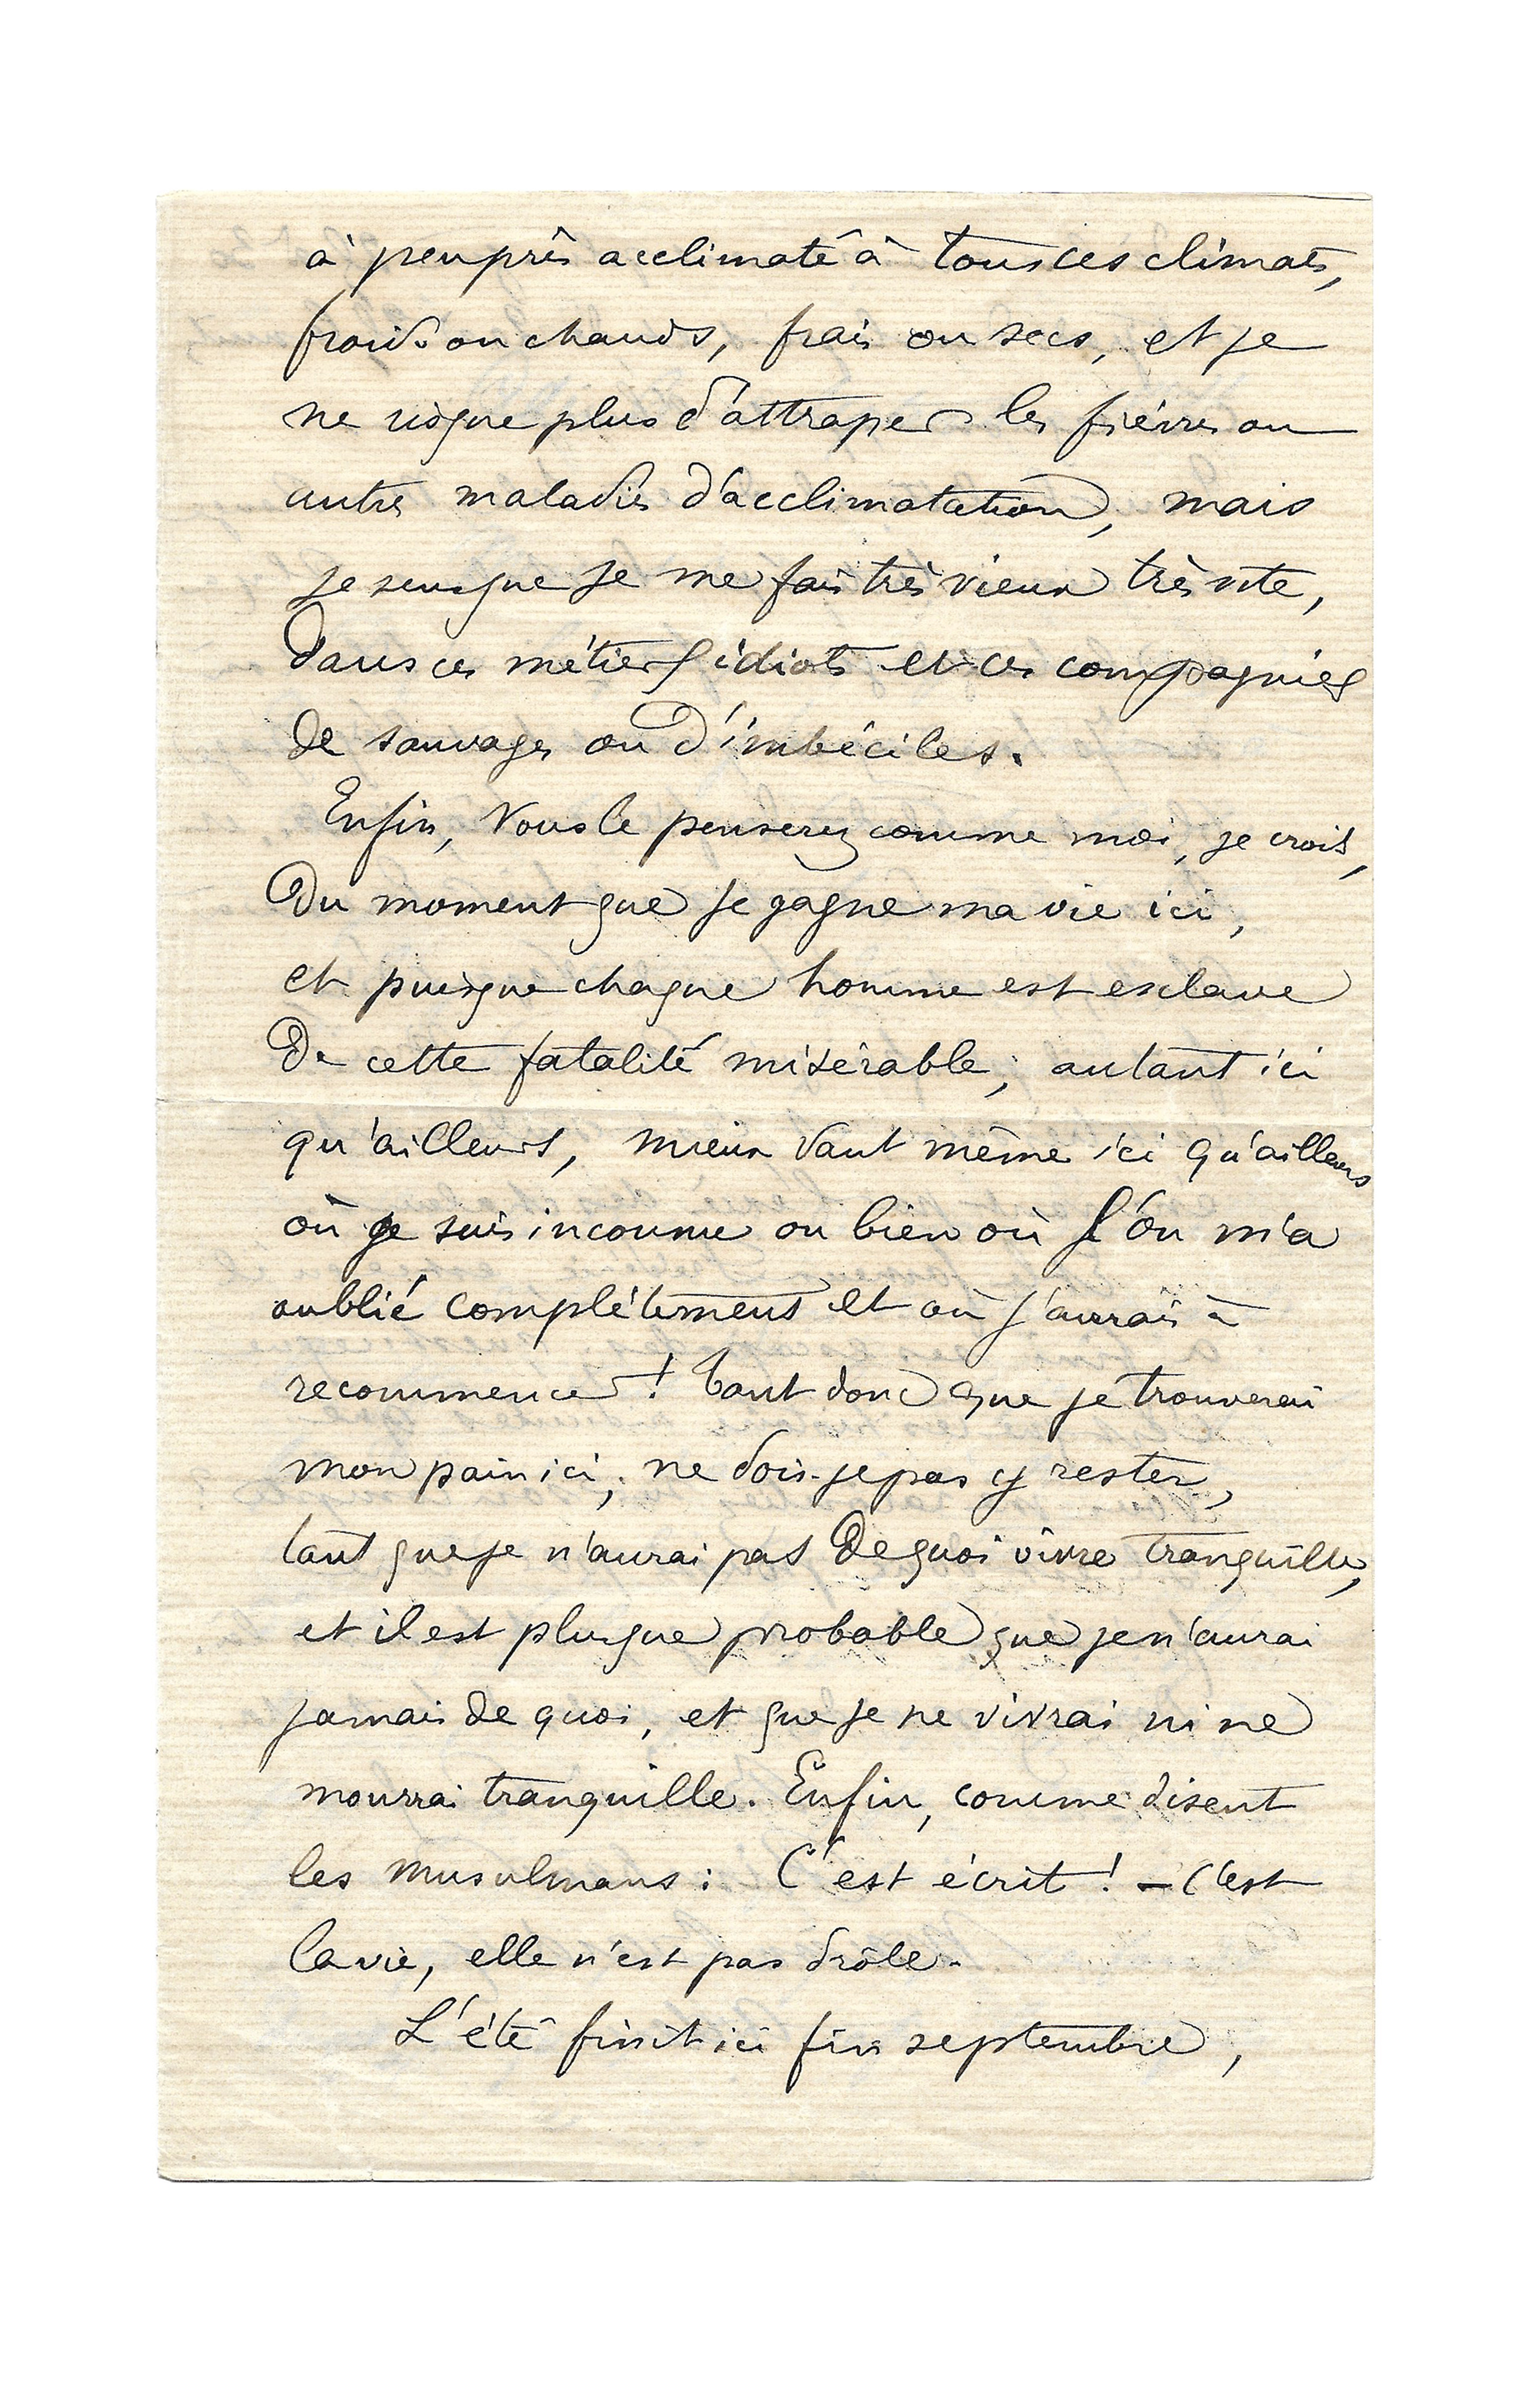 à peu près acclimaté à tous ces climats,
froids ou chauds, frais ou secs, et je
ne risque plus d'attraper les fièvres ou
autres maladies d'acclimatation, mais
je sens que je me fais très vieux très vite,
dans ces métiers idiots et ces compagnies
de sauvages ou d'imbéciles.
Enfin, vous le penserez comme moi, je crois,
Du moment que je gagne ma vie ici,
et puisque chaque homme est esclave
De cette fatalité misérable, autant ici
qu'ailleurs, mieux vaut même ici qu'ailleurs
où je suis inconnu ou bien où l'on m'a
oublié complètement et où j'aurais à
recommencer ! Tant donc que je trouverai
mon pain ici, ne dois-je pas y rester,
tant que je n'aurai pas De quoi vivre tranquille,
et il est plus que probable que je n'aurai
jamais de quoi, et que je ne vivrai ni ne
mourrai tranquille. Enfin, comme disent
les Musulmans : C'est écrit ! – C'est
la vie, elle n'est pas drôle.
L'été finit ici fin septembre,